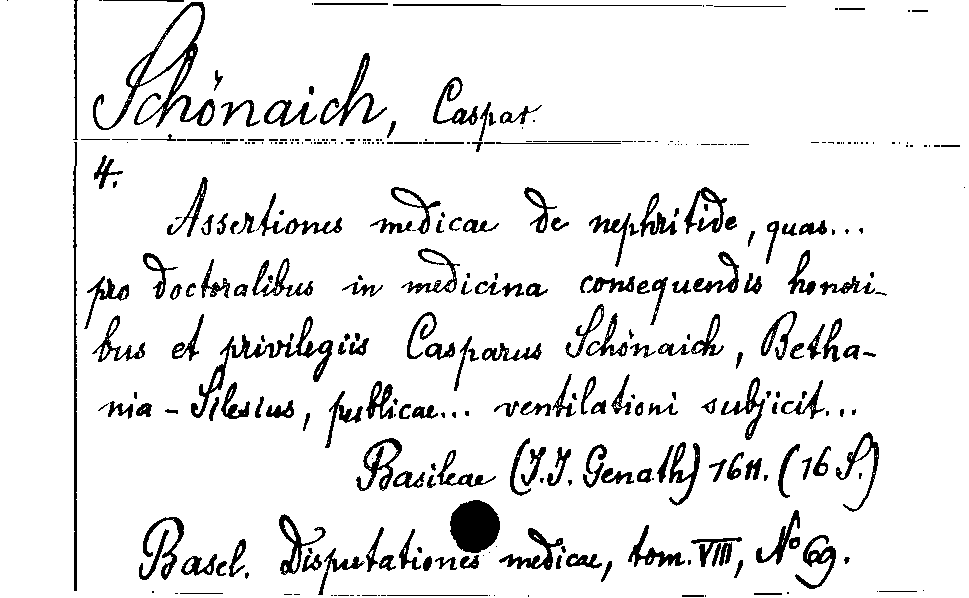 Schönaich, Caspar.
4.
Assertiones medicae de nephritide, quas...
pro doctoralibus in medicina consequendis honori-
bus et privilegiis Casparus Schönaich, Betha-
nia-Silesius, publicae... ventilationi subjicit...
Basileae (J.J. Genath) 1611. (16 S.)
Basel. Disputationes medicae, tom. VIII, No 69.